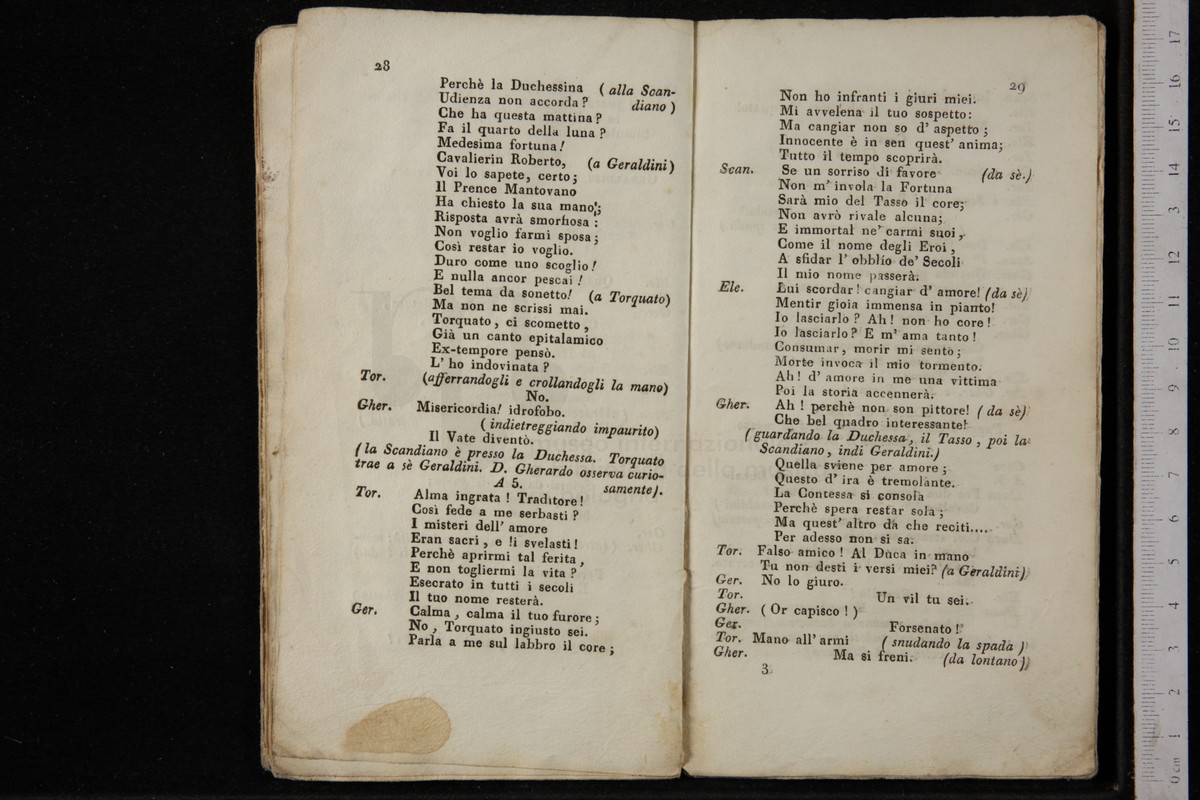 28
Perchè la Duchessina (alla Scan-
Udienza non accorda? diano)
Che ha questa mattina?
Fa il quarto della luna?
Medesima fortuna!
Cavalierin Roberto, (a Geraldini)
Voi lo sapete, certo;
Il Prence Mantovano
Ha chiesto la sua mano;
Risposta avrà smorfiosa:
Non voglio farmi sposa;
Così restar io voglio.
Duro come uno scoglio!
E nulla ancor pescai!
Bel tema da sonetto! (a Torquato)
Ma non ne scrissi mai.
Torquato, ci scometto,
Già un canto epitalamico
Ex-tempore pensò.
L' ho indovinata?
Tor. (afferrandogli e crollandogli la mano)
No.
Gher. Misericordia! idrofobo.
(indietreggiando impaurito)
Il Vate diventò.
(la Scandiano è presso la Duchessa. Torquato
trae a sè Geraldini. D. Gherardo osserva curio-
A 5. samente).
Tor. Alma ingrata! Traditore!
Così fede a me serbasti?
I misteri dell' amore
Eran sacri, e li svelasti!
Perchè aprirmi tal ferita,
E non togliermi la vita?
Esecrato in tutti i secoli
Il tuo nome resterà.
Ger. Calma, calma il tuo furore;
No, Torquato ingiusto sei.
Parla a me sul labbro il core;
29
Non ho infranti i giuri miei.
Mi avvelena il tuo sospetto:
Ma cangiar non so d' aspetto;
Innocente è in sen quest' anima;
Tutto il tempo scoprirà.
Scan. Se un sorriso di favore (da sè.)
Non m' invola la Fortuna
Sarà mio del Tasso il core;
Non avrò rivale alcuna;
E immortal ne' carmi suoi,
Come il nome degli Eroi,
A sfidar l' obblio de' Secoli
Il mio nome passerà.
Ele. Lui scordar! cangiar d' amore! (da sè)
Mentir gioia immensa in pianto!
Io lasciarlo? Ah! non ho core!
Io lasciarlo? E m' ama tanto!
Consumar, morir mi sento;
Morte invoca il mio tormento.
Ah! d' amore in me una vittima
Poi la storia accennerà.
Gher. Ah! perchè non son pittore! (da sè)
Che bel quadro interessante!
(guardando la Duchessa, il Tasso, poi la
Scandiano, indi Geraldini.)
Quella sviene per amore;
Questo d' ira è tremolante.
La Contessa si consola
Perchè spera restar sola;
Ma quest' altro dà che reciti....
Per adesso non si sa.
Tor. Falso amico! Al Duca in mano
Tu non desti i versi miei? (a Geraldini)
Ger. No lo giuro.
Tor. Un vil tu sei.
Gher. (Or capisco!)
Ger. Forsenato!
Tor. Mano all' armi (snudando la spada)
Gher. Ma si freni. (da lontano)
3